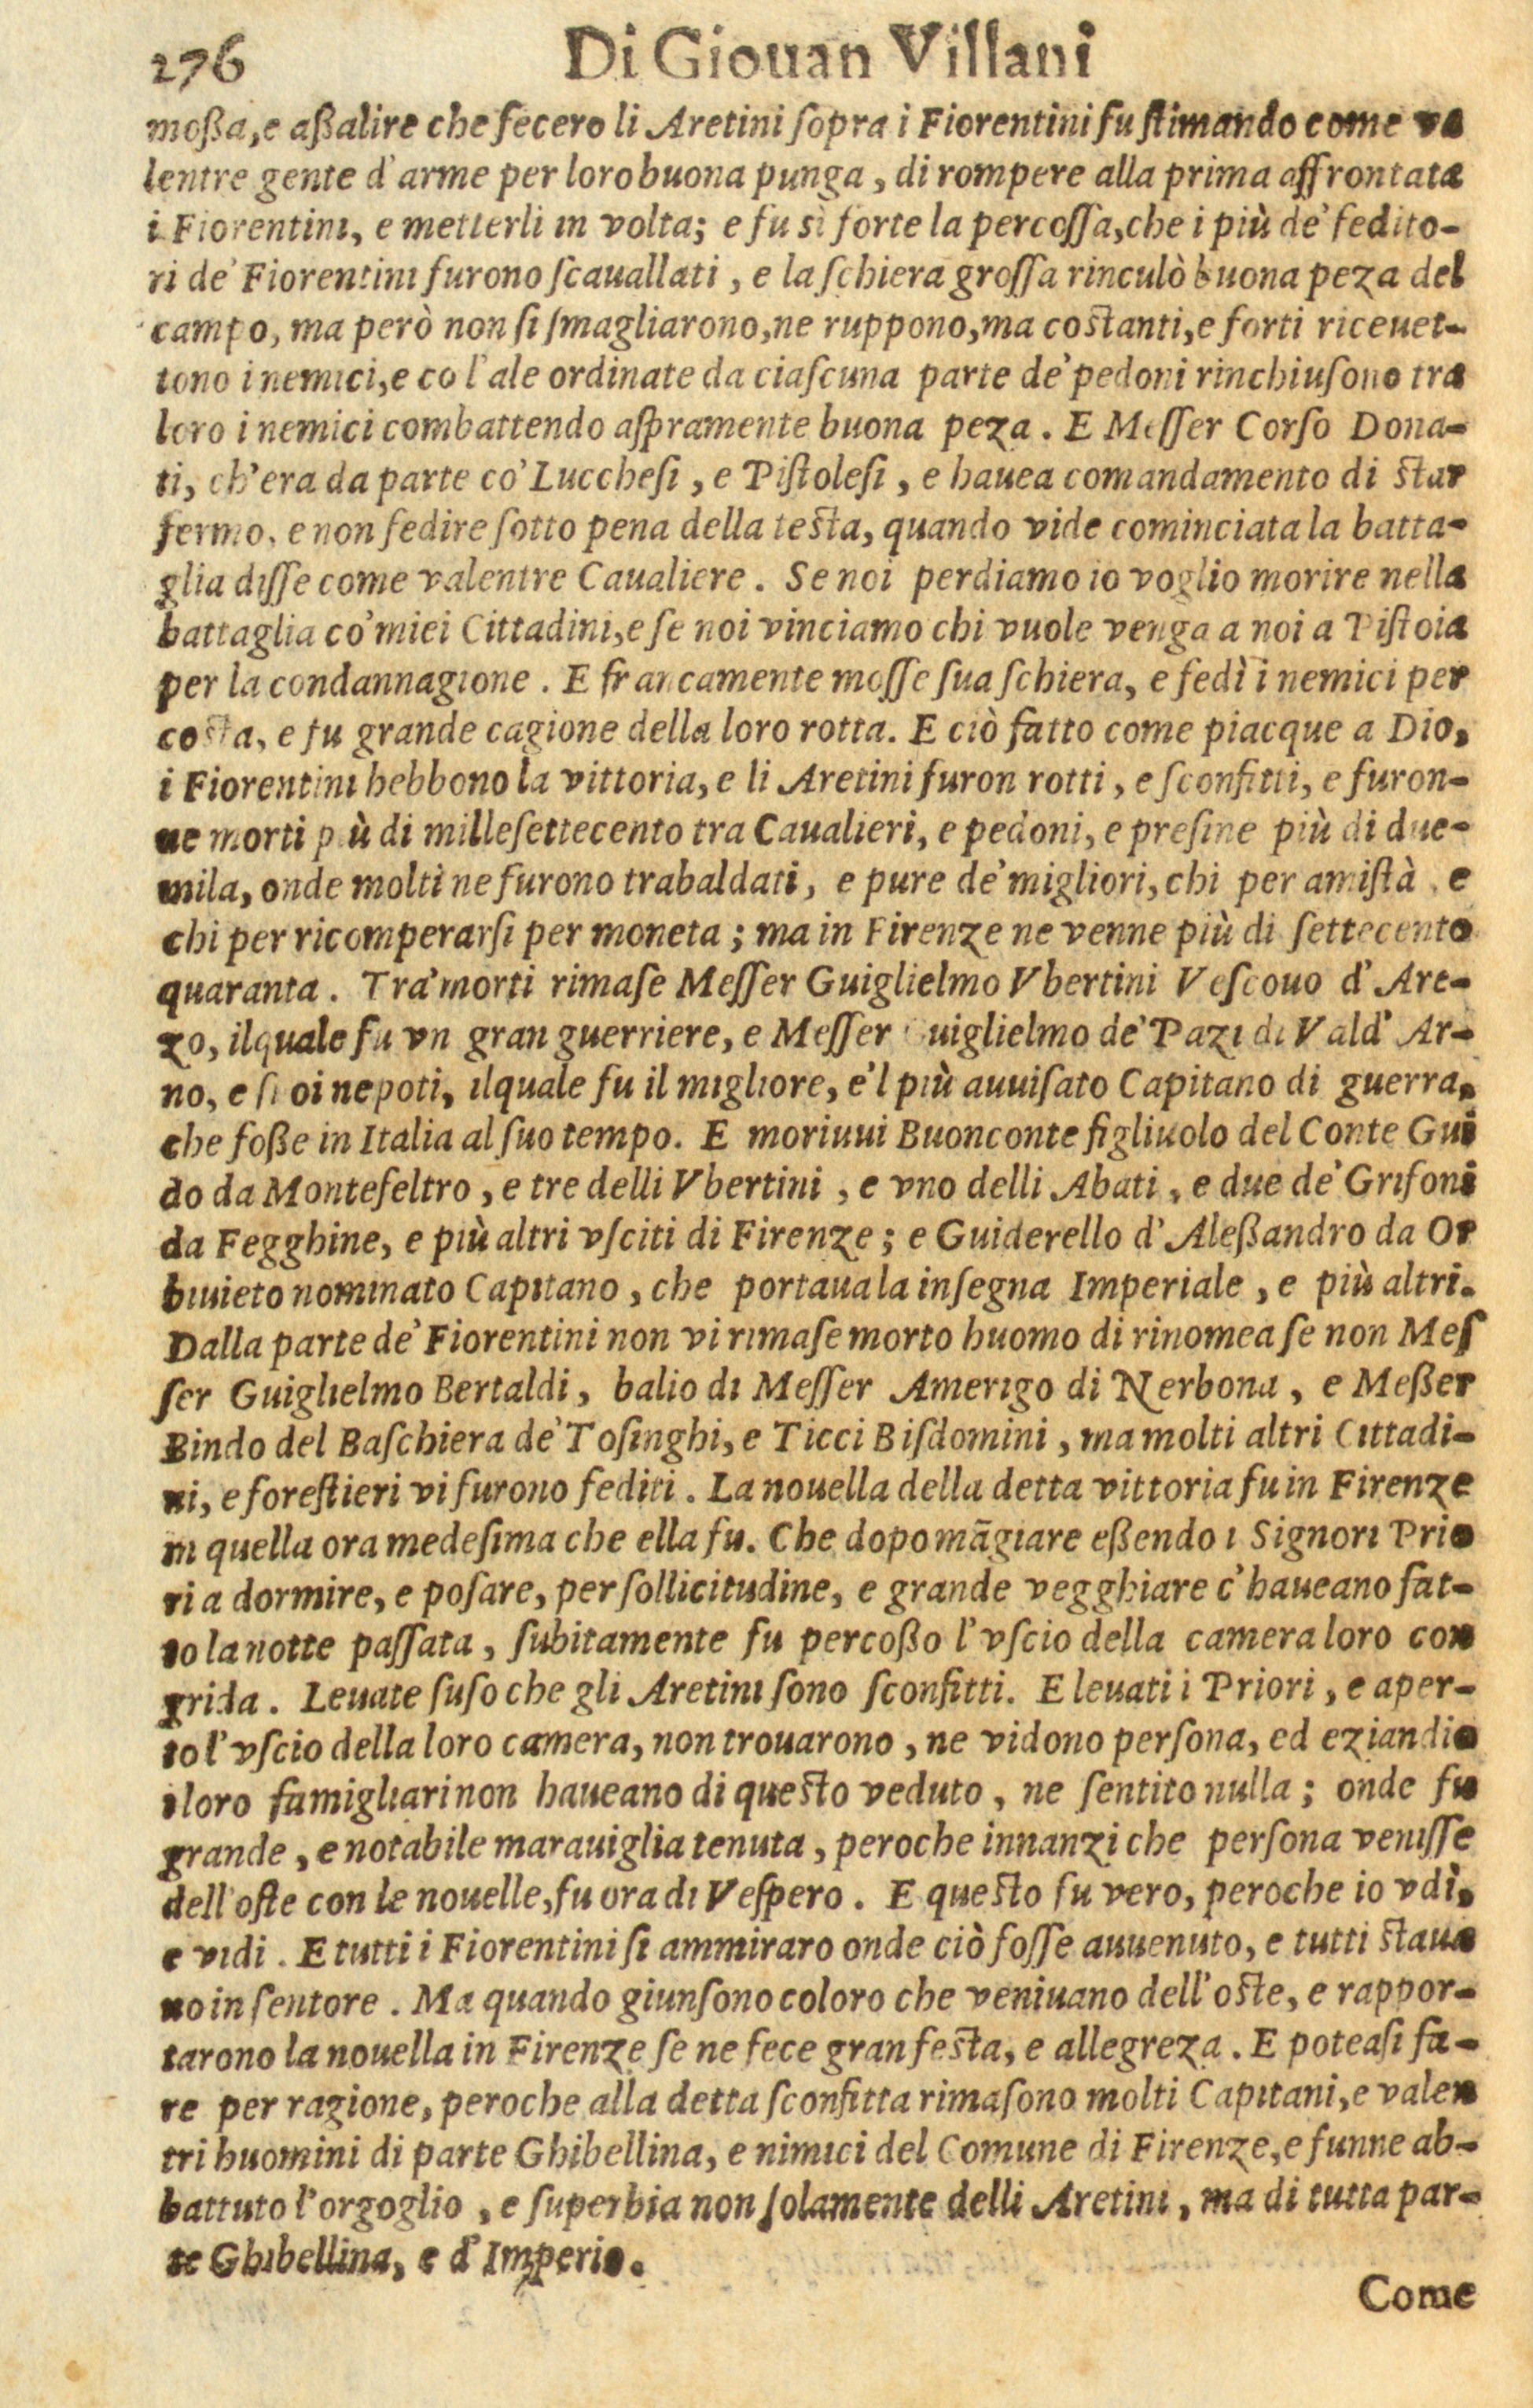 276 Di Giouan Villani
moßa, e aßalire che fecero li Aretini ſopra i Fiorentini fu ſtimando come va
lentre gente d'arme per loro buona punga, di rompere alla prima affrontata
i Fiorentini, e metterli in volta; e fu sì forte la percoſſa, che i più de' fedito-
ri de' Fiorentini furono ſcauallati, e la ſchiera groſſa rinculò buona peza del
campo, ma però non ſi ſmagliarono, ne ruppono, ma coſtanti, e forti riceuet-
tono i nemici, e co l'ale ordinate da ciaſcuna parte de' pedoni rinchiuſono tra
loro i nemici combattendo aſpramente buona peza. E Meſſer Corſo Dona-
ti, ch'era da parte co' Luccheſi, e Piſtoleſi, e hauea comandamento di ſtar
fermo, e non fedire ſotto pena della teſta, quando vide cominciata la batta-
glia diſſe come valentre Caualiere. Se noi perdiamo io voglio morire nella
battaglia co' miei Cittadini, e ſe noi vinciamo chi vuole venga a noi a Piſtoia
per la condannagione. E francamente moſſe ſua ſchiera, e fedì i nemici per
coſta, e fu grande cagione della loro rotta. E ciò fatto come piacque a Dio,
i Fiorentini hebbono la vittoria, e li Aretini furon rotti, e ſconfitti, e furon-
ne morti più di milleſettecento tra Caualieri, e pedoni, e preſine più di due-
mila, onde molti ne furono trabaldati, e pure de' migliori, chi per amiſtà, e
chi per ricomperarſi per moneta; ma in Firenze ne venne più di ſettecento
quaranta. Tra' morti rimaſe Meſſer Guiglielmo Vbertini Veſcouo d'Are-
zo, ilquale fu vn gran guerriere, e Meſſer Guiglielmo de' Pazi di Vald'Ar-
no, e ſuoi nepoti, ilquale fu il migliore, e'l più auuiſato Capitano di guerra,
che foße in Italia al ſuo tempo. E moriuui Buonconte figliuolo del Conte Gui
do da Montefeltro, e tre delli Vbertini, e vno delli Abati, e due de' Grifoni
da Fegghine, e più altri vſciti di Firenze; e Guiderello d'Aleßandro da Or
biuieto nominato Capitano, che portaua la inſegna Imperiale, e più altri.
Dalla parte de' Fiorentini non vi rimaſe morto huomo di rinomea ſe non Meſ
ſer Guiglielmo Bertaldi, balio di Meſſer Amerigo di Nerbona, e Meßer
Bindo del Baſchiera de' Toſinghi, e Ticci Biſdomini, ma molti altri Cittadi-
ni, e foreſtieri vi furono fediti. La nouella della detta vittoria fu in Firenze
in quella ora medeſima che ella fu. Che dopo mãgiare eßendo i Signori Prio
ri a dormire, e poſare, per ſollicitudine, e grande vegghiare c'haueano fat-
to la notte paſſata, ſubitamente fu percoßo l'vſcio della camera loro con
grida. Leuate ſuſo che gli Aretini ſono ſconfitti. E leuati i Priori, e aper-
to l'vſcio della loro camera, non trouarono, ne vidono perſona, ed eziandio
i loro famigliari non haueano di queſto veduto, ne ſentito nulla; onde fu
grande, e notabile marauiglia tenuta, peroche innanzi che perſona veniſſe
dell'oſte con le nouelle, fu ora di Veſpero. E queſto fu vero, peroche io vdì,
e vidi. E tutti i Fiorentini ſi ammiraro onde ciò foſſe auuenuto, e tutti ſtaua
no in ſentore. Ma quando giunſono coloro che veniuano dell'oſte, e rappor-
tarono la nouella in Firenze ſe ne fece gran feſta, e allegreza. E poteaſi fa-
re per ragione, peroche alla detta ſconfitta rimaſono molti Capitani, e valen
tri huomini di parte Ghibellina, e nimici del Comune di Firenze, e funne ab-
battuto l'orgoglio, e ſuperbia non ſolamente delli Aretini, ma di tutta par-
te Ghibellina, e d'Imperio.
Come